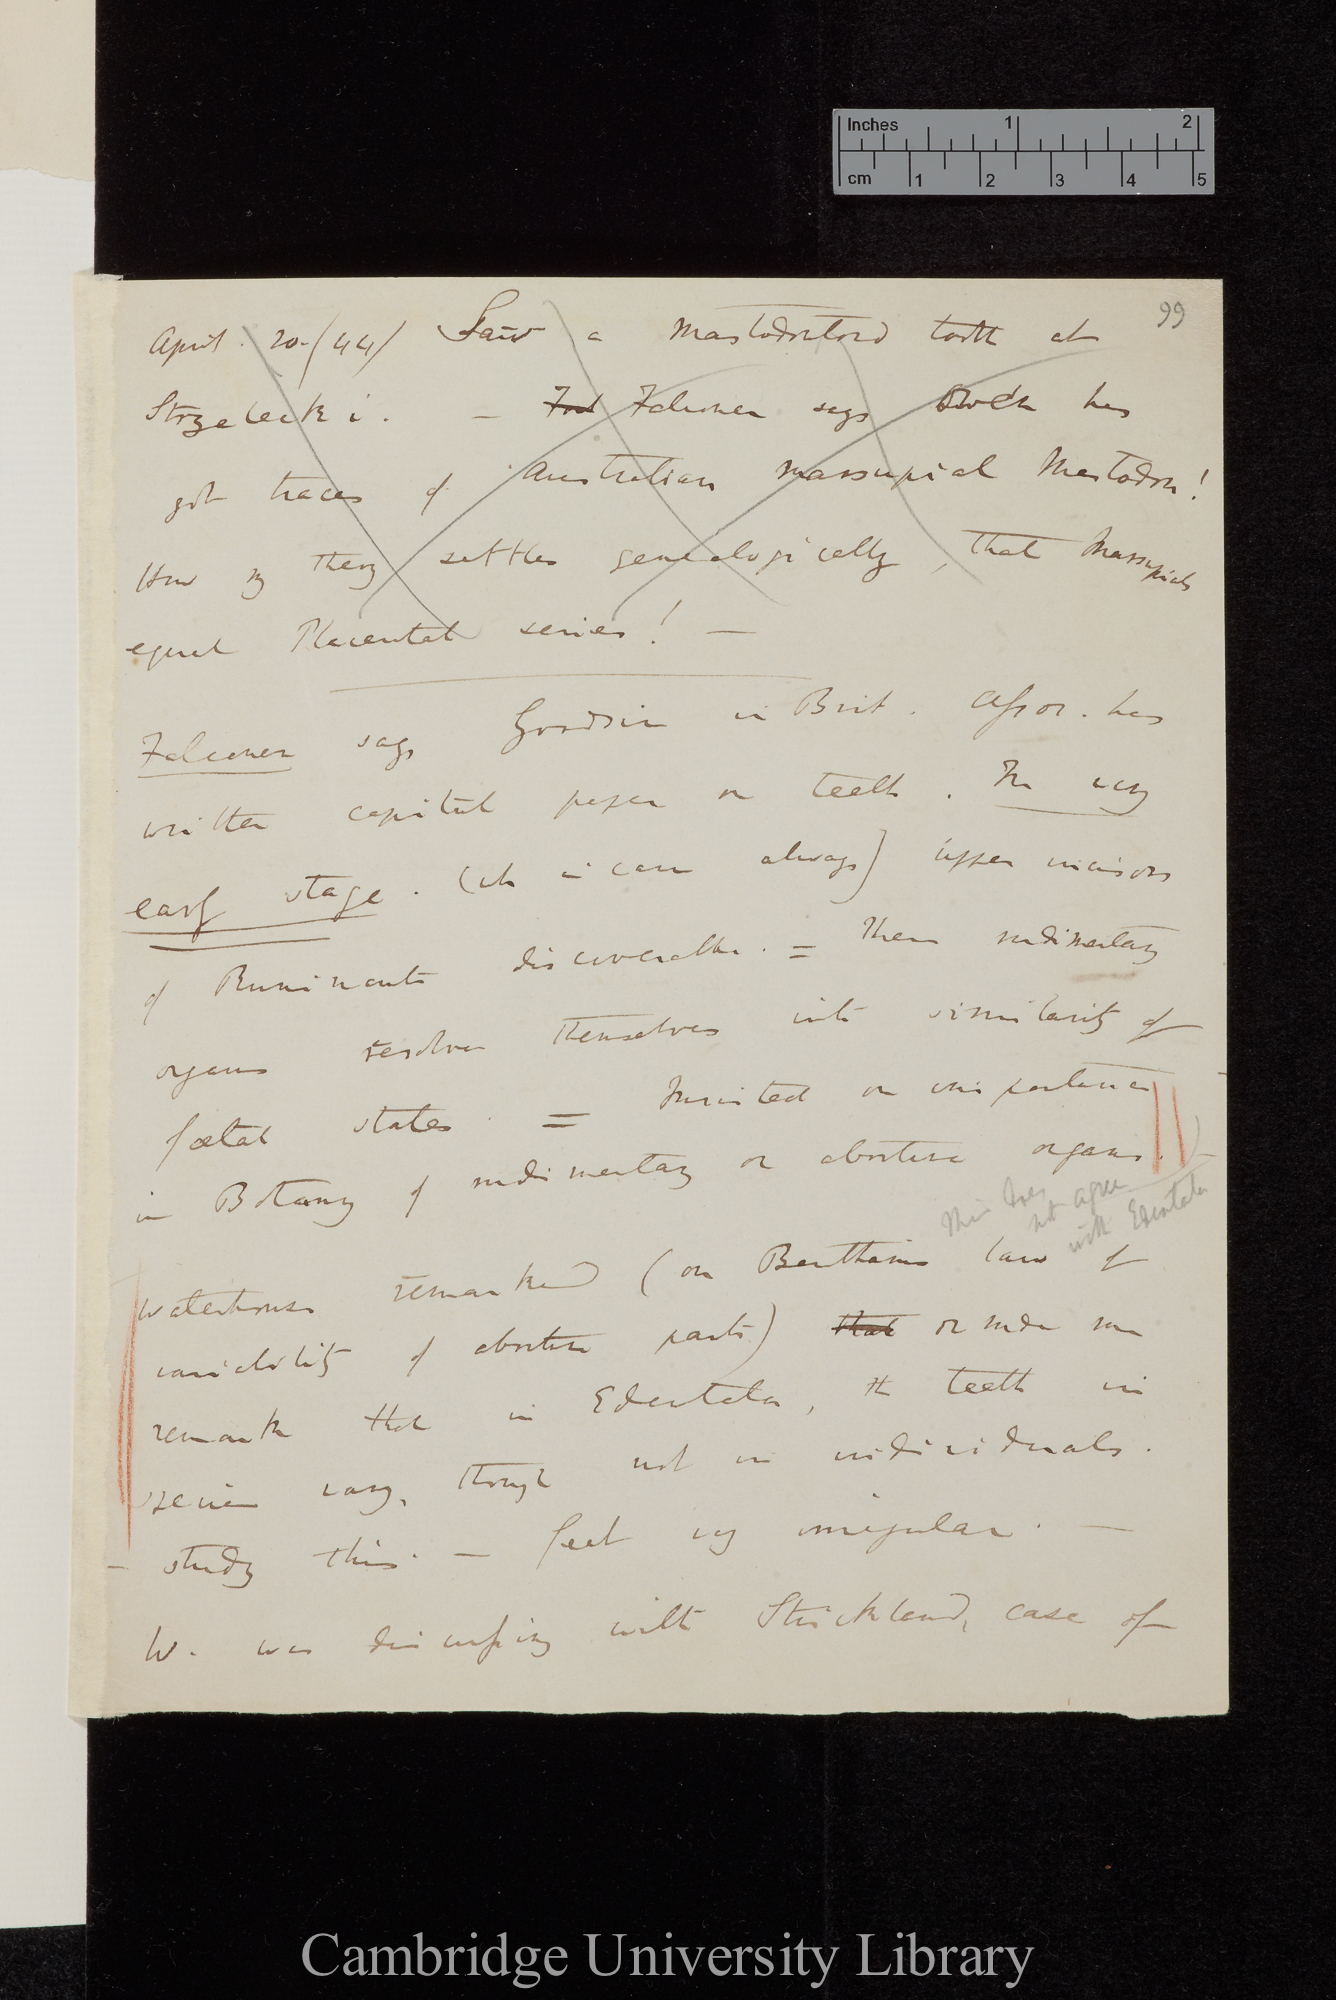 Inches 1 2
cm 1 2 3 4 5
99
April. 20./44/ Saw a Mastodontoid tooth at
Strzelecki. — Falconer says Owen has
got traces of Australian marsupial Mastodon!
How my theory settles genealogically, that Marsupials
equal Placental series! —
Falconer says Goodsir in Brit. Assoc. has
written capital paper on teeth. In very
early stage. (ch in cavia always) upper incisors
of Ruminants discoverable. = These rudimentary
organs resolve themselves into similarity of
foetal states = Insisted on importance
in Botany of rudimentary or abortive organs.
This does
not agree
with Edentata
Waterhouse remarked (on Benthams law of
variability of abortive parts) that or under my
remark that in Edentata, the teeth in
series vary, though not in individuals.
— study this. — feet very irregular. —
W. was discussing with Strickland, case of
Cambridge University Library